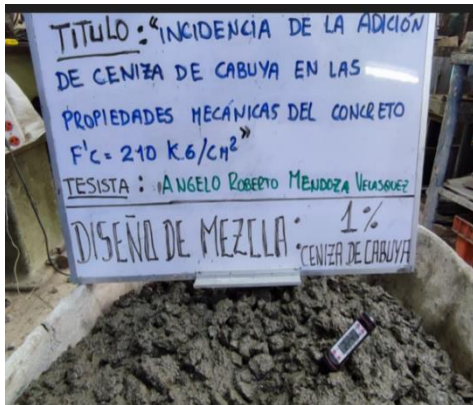 TÍTULO : "INCIDENCIA DE LA ADICIÓN
DE CENIZA DE CABUYA EN LAS
PROPIEDADES MECÁNICAS DEL CONCRETO
F'C = 210 K.G/CM²"
TESISTA : ANGELO ROBERTO MENDOZA VELASQUEZ
DISEÑO DE MEZCLA : 1%
CENIZA DE CABUYA